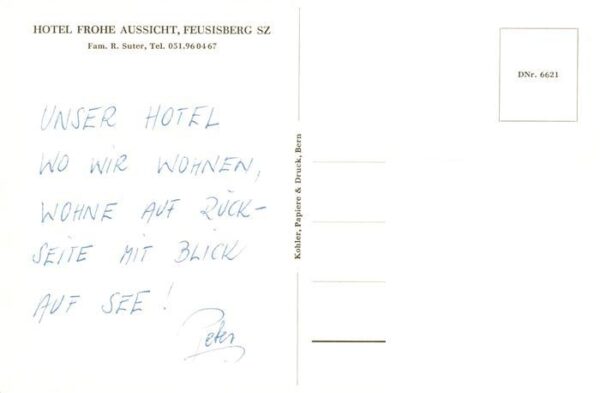 HOTEL FROHE AUSSICHT, FEUSISBERG SZ
Fam. R. Suter, Tel. 051.96 04 67
UNSER HOTEL
WO WIR WOHNEN,
WOHNE AUF RÜCK-
SEITE MIT BLICK
AUF SEE!
Peter
Kohler, Papiere & Druck, Bern
DNr. 6621